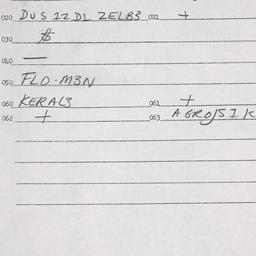 020 DUS 12 D1 ZELB3 021 +
030 $
040 —
050 FLO·M3N
060 KERAL3 061 +
062 + 063 AGROJSIK